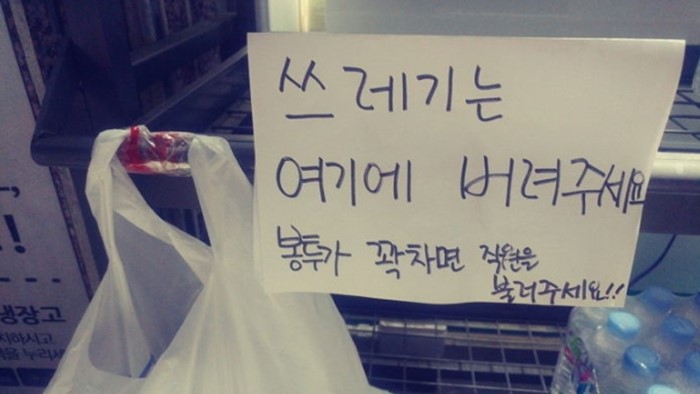 쓰레기는
여기에 버려주세요
봉투가 꽉차면 직원을
불러주세요!!
!
냉장고